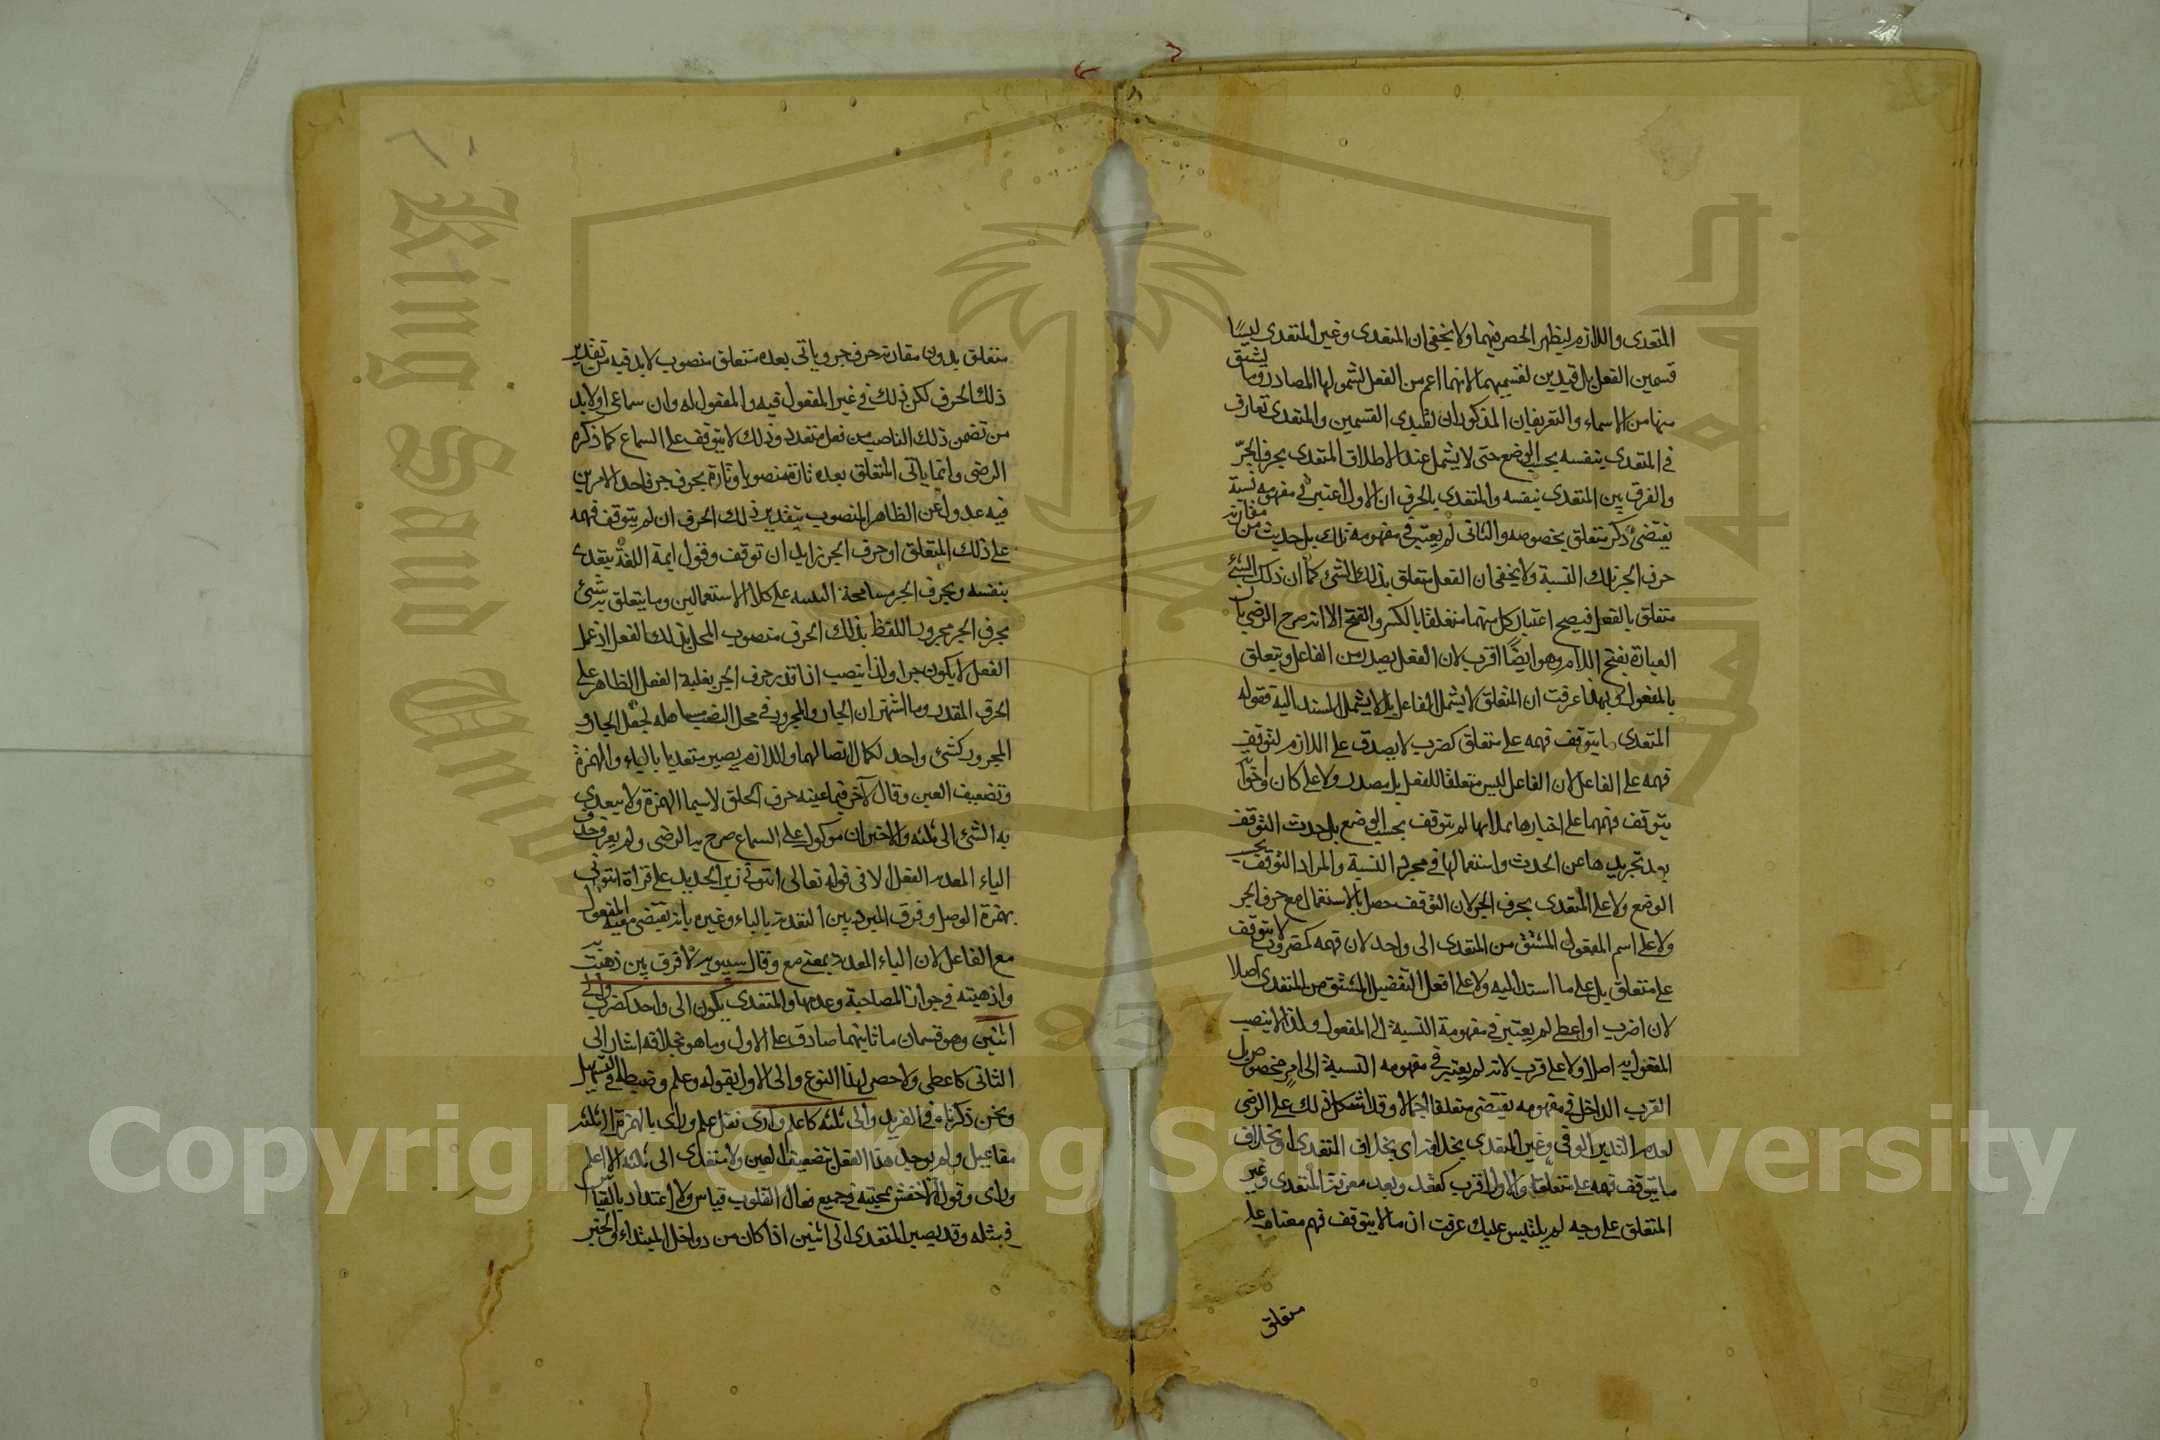 المتعدى واللازم ليظهر الحصر فيهما ولا يخفى ان المتعدى وغير المتعدى ليسا
قسمين الفعل بل قيدين لقسيمهما لانهما اعم من الفعل لشمولها المصادر وما يشتق
منها من الاسماء والتعريفان المذكوران لقيدى القسمين والمتعدى تعارف
فى المتعدى بنفسه بحسب الوضع حتى لا يشمل عند الاطلاق المتعدى بحرف الجرّ
والفرق بين المتعدى بنفسه والمتعدى بالحرف ان الاول اعتبر فى مفهومه نسبة
يقتضى ذكر متعلق بخصوصه والثانى لم يعتبر فى مفهومه تلك بل حديث من مقارنة
حرف الجر تلك النسبة ولا يخفى ان الفعل متعلق بذلك الشئ كما ان ذلك الشئ
متعلق بالفعل فيصح اعتبار كل منهما متعلقا بالكسر والفتح الا انه صرح الرضى بان
العبارة بفتح اللام وهو ايضًا اقرب لان الفعل يصدر من الفاعل ويتعلق
بالمفعول وبهذا عرفت ان المتعلق لا يشمل الفاعل بل لا يشمل المسند اليه فقوله
المتعدى ما يتوقف فهمه على متعلق كضرب لا يصدق على اللازم لتوقف
فهمه على الفاعل لان الفاعل ليس متعلقا للفعل بل مصدر ولا على كان واخواتها
يتوقف فهمها على اخبارها لانها لم يتوقف بحسب الوضع بل حدث التوقف
بعد تجريدها عن الحدث واستعمالها فى مجرد النسبة والمراد التوقف بحسب
الوضع ولا على المتعدى بحرف الجر لان التوقف حصل بالاستعمال مع حرف الجر
ولا على اسم المفعول المشتق من المتعدى الى واحد لان فهمه كمضروب لا يتوقف
على متعلق بل على ما اسند اليه ولا على افعل التفضيل المشتق من المتعدى اصلا
لان اضرب او اعطى لم يعتبر فى مفهومه النسبة الى المفعول ولذا لا ينصب
المفعول به اصلا ولا على قرب لانه لم يعتبر فى مفهومه النسبة الى امر مخصوص بل
القرب الداخل فى مفهومه يقتضى متعلقا اجمالا وقد اشكل ذلك على الرضى
لعدم التدبر الوفى وغير المتعدى بخلافه اى بخلاف المتعدى او بخلاف
ما يتوقف فهمه على متعلق والاول اقرب كقعد وبعد معرفة المتعدى وغير
المتعلق على وجه لم يلتبس عليك عرفت ان ما لا يتوقف فهم معناه على
متعلق
متعلق بدون مقارنة حرف جر وياتى بعده متعلق منصوب لابد فيه من تقدير
ذلك الحرف لكن ذلك فى غير المفعول فيه والمفعول له وان سماعى او لابد
من تضمن ذلك الناصب من فعل متعد وذلك لا يتوقف على السماع كما ذكره
الرضى وانما ياتى المتعلق بعده تارة منصوبا وتارة بحرف جر فاحد الامرين
فيه عدول عن الظاهر المنصوب بتقدير ذلك الحرف ان لم يتوقف فهمه
على ذلك المتعلق او حرف الجر زايد ان توقف وقول ايمة اللغة يتعدى
بنفسه وبحرف الجر مسامحة على كلا الاستعمالين وما يتعلق به شئ
بحرف الجر مجرور اللفظ بذلك الحرف منصوب المحل بذلك الفعل اذ عمل
الفعل لا يكون جرا ولذا ينصب اذا قدر حرف الجر بغلبة الفعل الظاهر على
الحرف المقدر وما اشتهر ان الجار والمجرور فى محل النصب مساهلة لجعل الجار و
المجرور كشئ واحد لكمال اتصالهما واللازم يصير متعديا بالباء والهمزة
وتضعيف العين وقال لآخر فيما عينه حرف الحلق لاسيما الهمزة ولا يتعدى
به الشئ الى ثلثه والاخيران موكول على السماع صرح به الرضى ولم يعرف حذف
الباء المعدية الفعل الا فى قوله تعالى آتونى زبر الحديد على قراة ائتونى
بهمزة الوصل وفرق المبرد بين التعدية بالباء وغيره بانه يقتضى معية المفعول
مع الفاعل لان الباء المعدية بمعنى مع وقال سيبويه لا فرق بين ذهبت به
واذهبته فى جواز المصاحبة وعدمها والمتعدى يكون الى واحد كضرب والى
اثنين وهو قسمان ما ثانيهما صادق على الاول وما هو بخلافه اشار الى
الثانى كاعطى ولا حصر لهذا النوع والى الاول بقوله وعلم وضبطه فى التسهيل
ونحن ذكرناه فى الفريد والى ثلثة كاعلم وارى نقل علم وراى بالهمزة الى ثلثة
مفاعيل ولم يوجد هذا الفعل بتضعيف العين ولا متعدى الى ثلثه الا اعلم
وارى وقول الاخفش بمجيئه فى جميع افعال القلوب قياس ولا اعتداد بالقياس
فى مثله وقد يصير المتعدى الى اثنين اذا كان من دواخل المبتداء والخبر
Copyright © King Saud University
King Saud University
1957